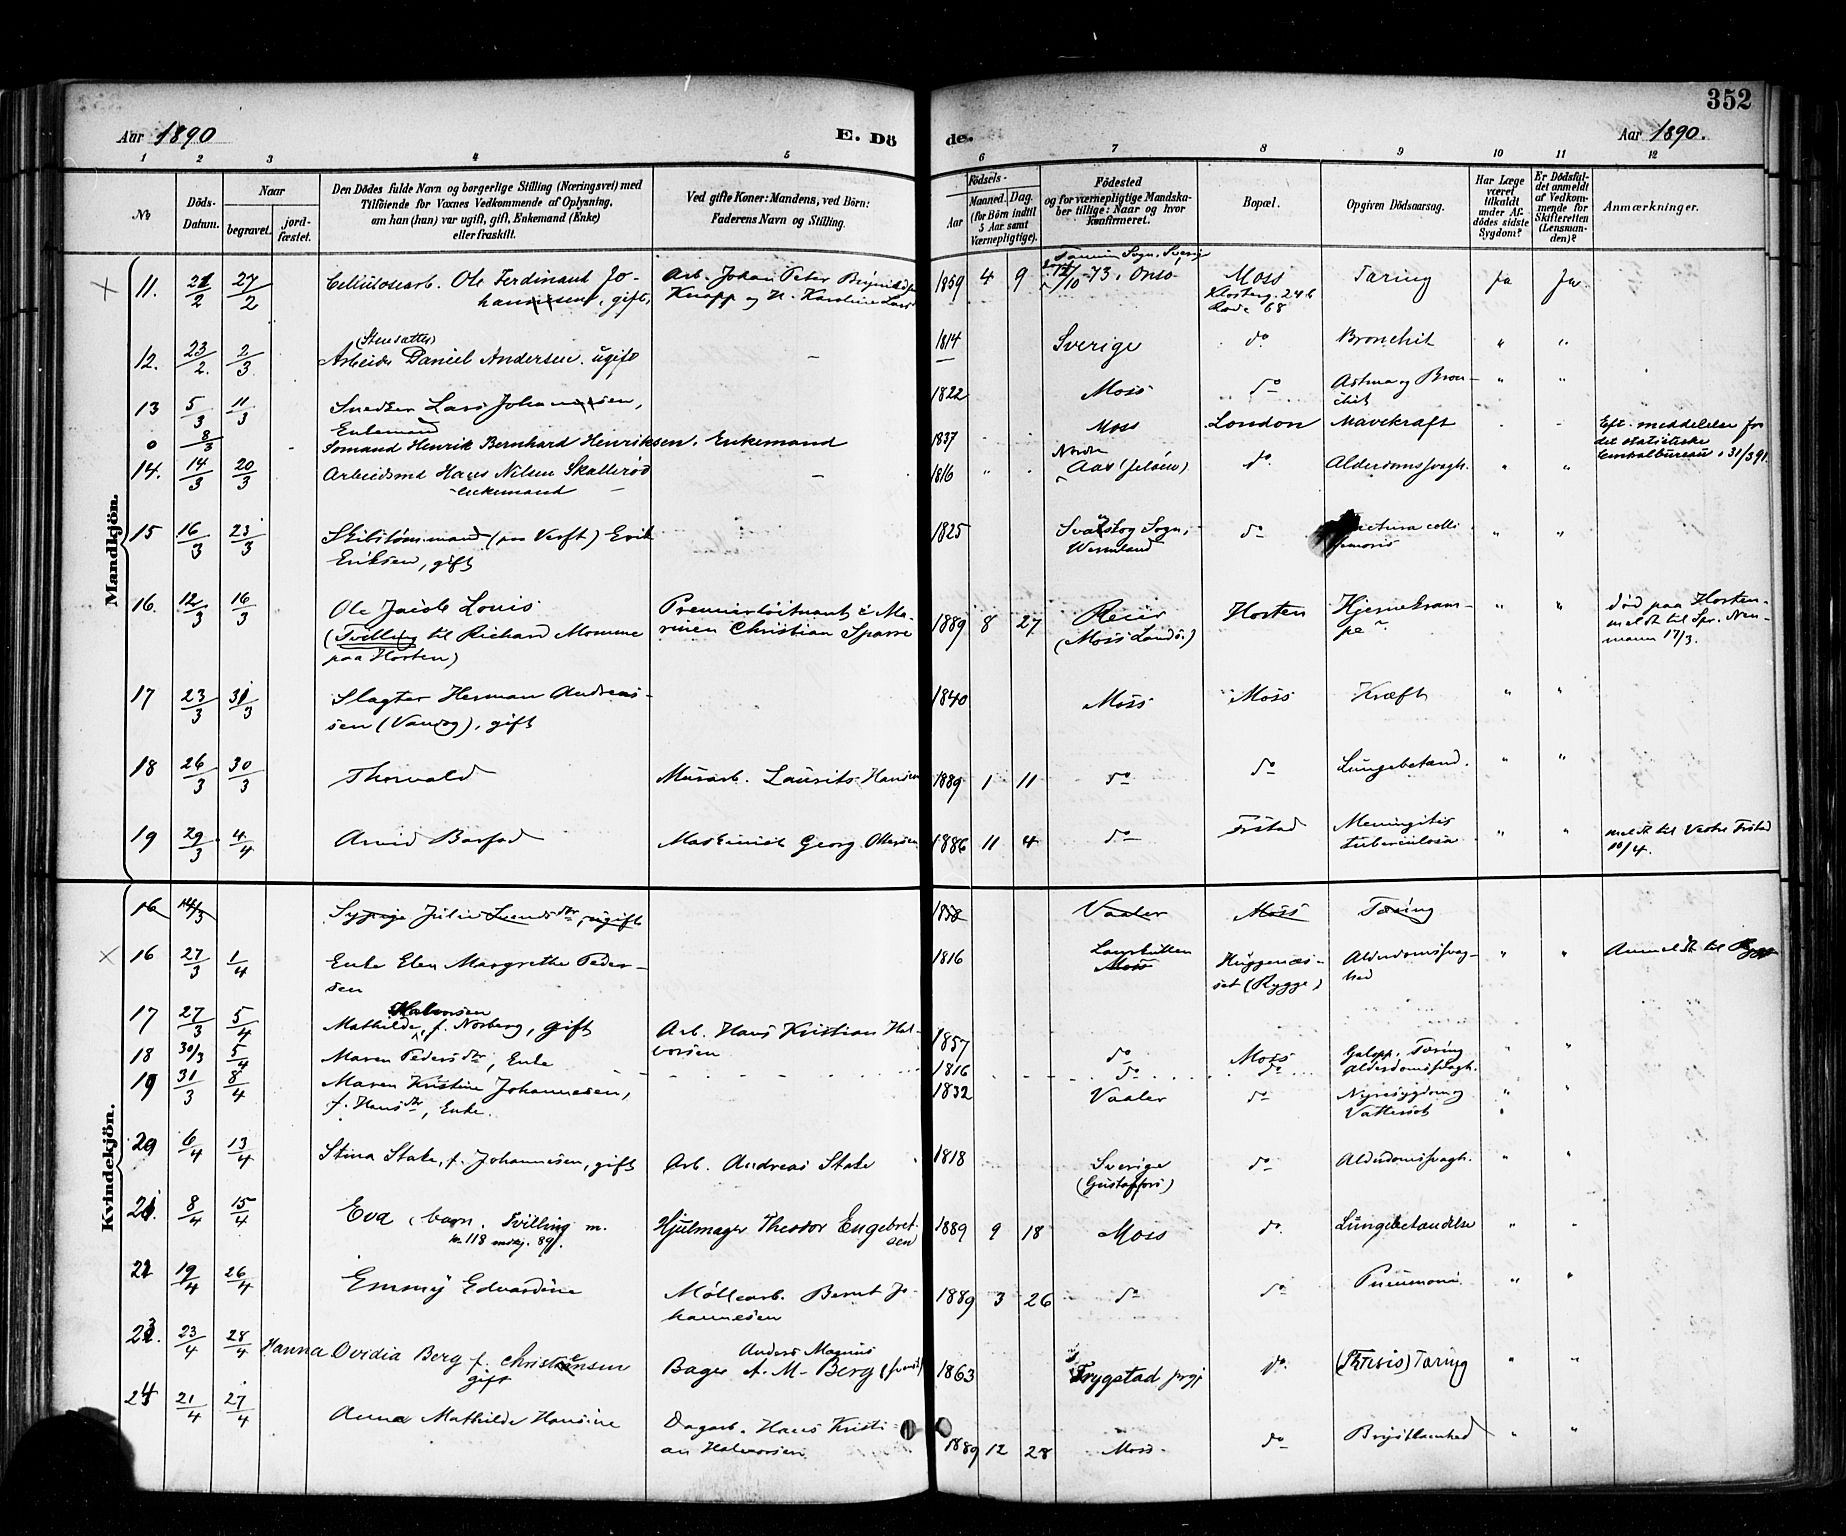 352
Aar 1890
E. Dö
de.
Aar 1890.
1 2 3 4 5 6 7 8 9 10 11 12
No
Döds-Datum.
Naar
begravet.
jordfæstet.
Den Dödes fulde Navn og borgerlige Stilling (Næringsvei) med
Tilföiende for Voxnes Vedkommende af Oplysning,
om han (hun) var ugift, gift, Enkemand (Enke)
eller fraskilt.
Ved gifte Koner: Mandens, ved Börn:
Faderens Navn og Stilling.
Födsels-
Aar
Maaned. Dag.
(for Börn indtil
5 Aar samt
Værnepligtige).
Födested
og for værnepligtige Mandskaber
tillige: Naar og hvor
konfirmeret.
Bopæl.
Opgiven Dödsaarsag.
Har Læge
været
tilkaldt
under Afdödes
sidste
Sygdom?
Er Dödsfaldet
anmeldt
af Vedkommende
for
Skifteretten
(Lensmanden)?
Anmærkninger.
Mandkjön.
11. 21/2 27/2 Cellulosearb. Ole Ferdinand Jo- Arb. Johan Peter 1859 4 9 Sogn, Sverige
hannessen, gift, Knapp og H. Karoline -73, Onsö Moss Tæring ja ja
Klosterg. 246
Rode 68
(Stensætter)
12. 23/2. 2/3 Arbeider Daniel Andersen. ugift - 1814 Sverige do Bronchit " "
13 5/3 11/3 Snedker Lars Johannessen, 1822 Moss do Astma og Bron- " "
Enkemand chit
0 8/3 Sömand Henrik Bernhard Henriksen. Enkemand 1837 Moss London Mavekræft - Eft. meddelelse fra
det statistiske
Centralbureau i 31/3 91.
14. 14/3 20/3 Arbeidsmd Hans Nilsen Skallerød - 1816 " Nordre
Aas (Jelöen). do. Alderdomssvagh. " "
enkemand
15 16/3 23/3 Skibstömmermand (paa Verft) Erik 1825 Sogn, do colli " "
Eriksen, gift Wermland femoris
16. 12/3 16/3 Ole Jacob Louis Premierløitnant i Ma- 1889 8 27 Reier Horsten Hjernekram- " " død paa Horten
(Tvilling til Richard Momme rinen Christian Sparre (Moss Lands.) pe meldt til Spr. Neu-
paa Horten) mann 17/3.
17 23/3 31/3 Slagter Herman Andreas- 1840 Moss Moss Kræft " "
sen (Vansøg), gift
18 26/3 30/3 Thorvald Murarb. Laurits Hansen 1889 1 11 do do Lungebetænd. " "
19 29/3 4/4 Arvid Barfod Maskinist Georg Ottersen 1886 11 4 do Frstad Meningitis " " meldt til Vestre Frstad
tuberculosa 10/4.
Kvindekjön.
16 14/3 Sypige Julie Svendsdtr, ugift 1858 Vaaler Moss Tæring
16 27/3 1/4 Enke Elen Margrethe Peder- 1816 Moss Huggenæs- Alderdomssvag- " " Anmeldt til Rygge
sen set (Rygge) hed
17 27/3 5/4 Halvorsen
Mathilde, f. Norberg, gift Arb. Hans Kristian Hal- 1857 do Moss Galop. Tæring " "
vorsen
18 30/3 5/4 Maren Pedersdtr, Enke 1816 do do Alderdomssvagh.
19 31/3 8/4 Maren Kristine Johannesen, 1832 Vaaler do Nyresygdom og " "
f. Hansdtr, Enke. Vattersot
20 6/4 13/4 Stina Stake, f. Johannesen, gift Arb. Andreas Stake 1818 Sverige do Alderdomssvagh. " "
(Gustafsfors)
21. 8/4 15/4 Eva, barn. Tvilling m. Hjulmager Theodor Engebret- 1889 9 18 Moss do. Lungebetændelse " "
No 118 mdkj. 89. sen
22 19/4 26/4 Emmy Edvardine Möllearb. Bernt Jo- 1889 3 26 do do Pneumoni " "
hannesen
23. 23/4 28/4 Hanna Ovidia Berg f. Christensen Anders Magnus
Bager A. M. Berg 1863 Trygstad prgj do. (Phtisis) Tæring " "
gift
24 21/4 27/4 Anna Mathilde Hansine Dagarb. Hans Kristi- 1889 12 28 Moss do Brystkamhed " "
an Halvorsen